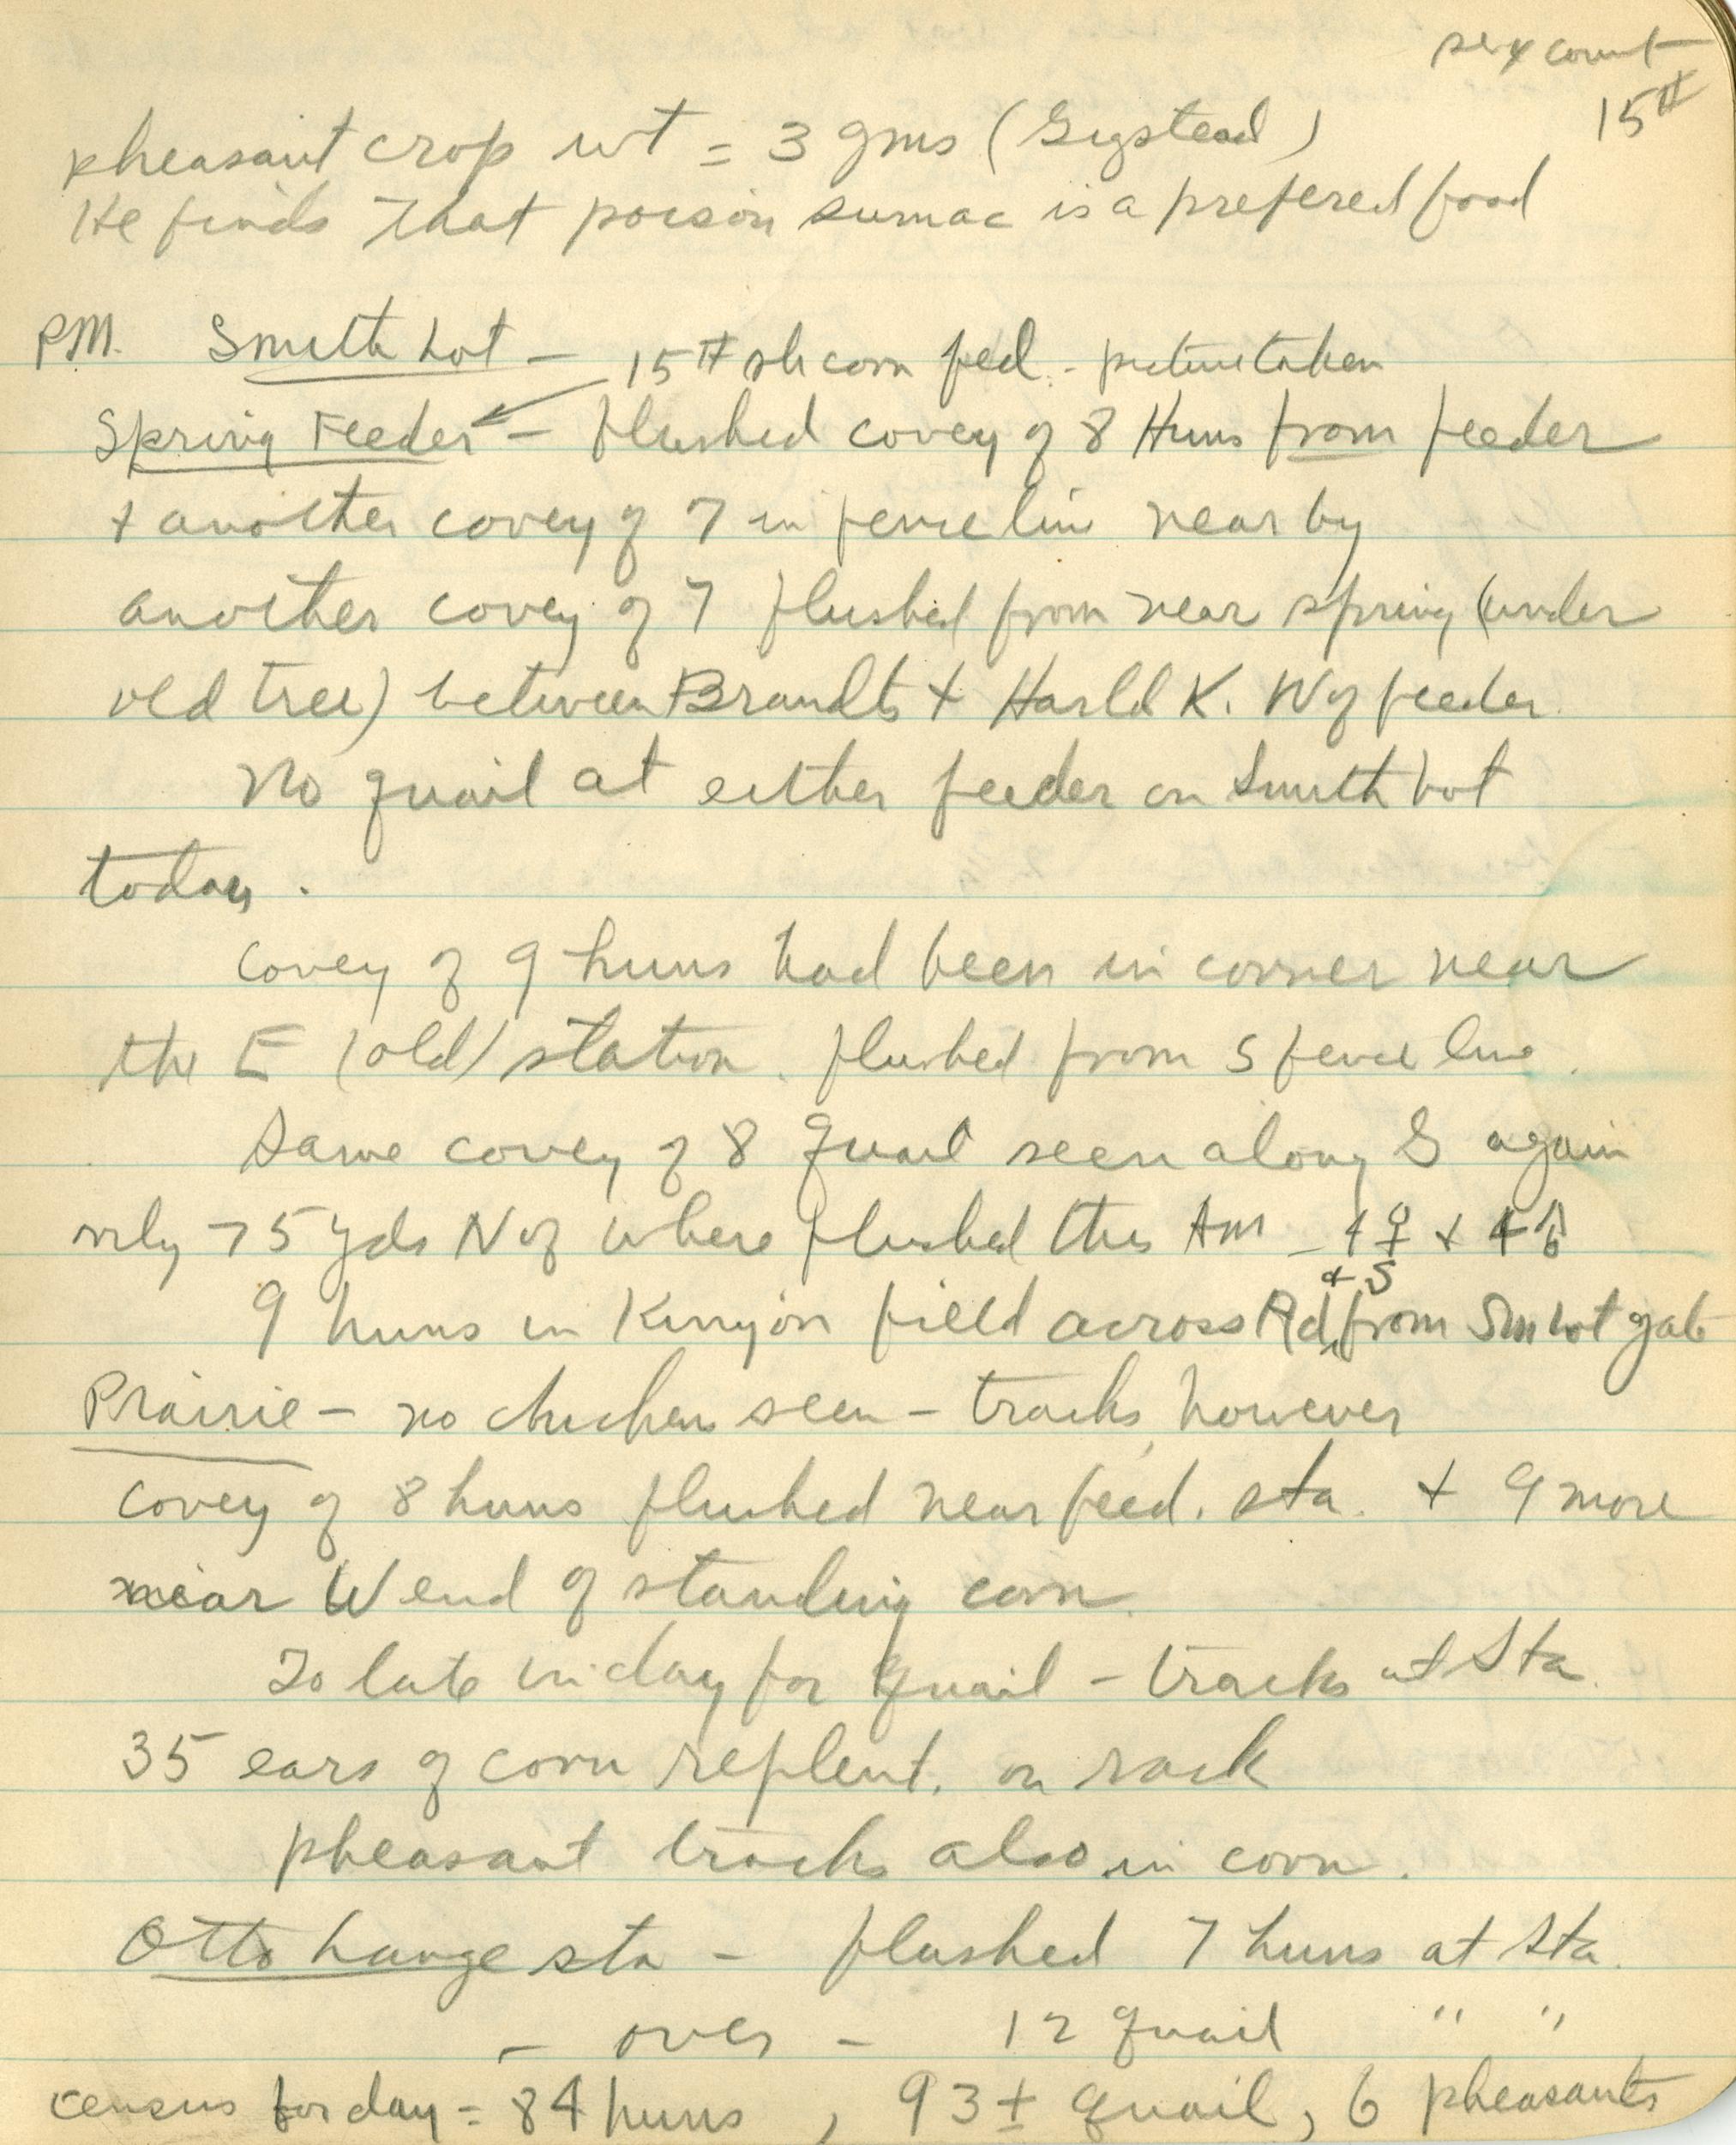 sex count
15#
pheasant crop wt = 3 gms (Gigstead)
He finds that poison sumac is a prefered food
P.M. Smith Lot - 15# sh corn fed - picture taken
Spring Feeder - flushed covey of 8 Huns from feeder
+ another covey of 7 in fence line near by
another covey of 7 flushed from near spring (under
old tree) between Brandts + Harld K. W of feeder.
No quail at either feeder on Smith Lot
today.
covey of 9 huns had been in corner near
the E (old) station. flushed from S fence line.
Same covey of 8 quail seen along S again
only 75 yds N of where flushed this AM - 4♀ + 4♂
9 huns in Kinyon field across Rd + S from Sm Lot gate
Prairie - no chicken seen - tracks, however
covey of 8 huns flushed near feed. sta. + 9 more
near W end of standing corn.
To late in day for quail - tracks at Sta.
35 ears of corn replent. on rack
pheasant tracks also in corn.
Otto Lange sta - flushed 7 huns at sta.
- over - 12 quail " "
census for day = 84 huns, 93± quail, 6 pheasants